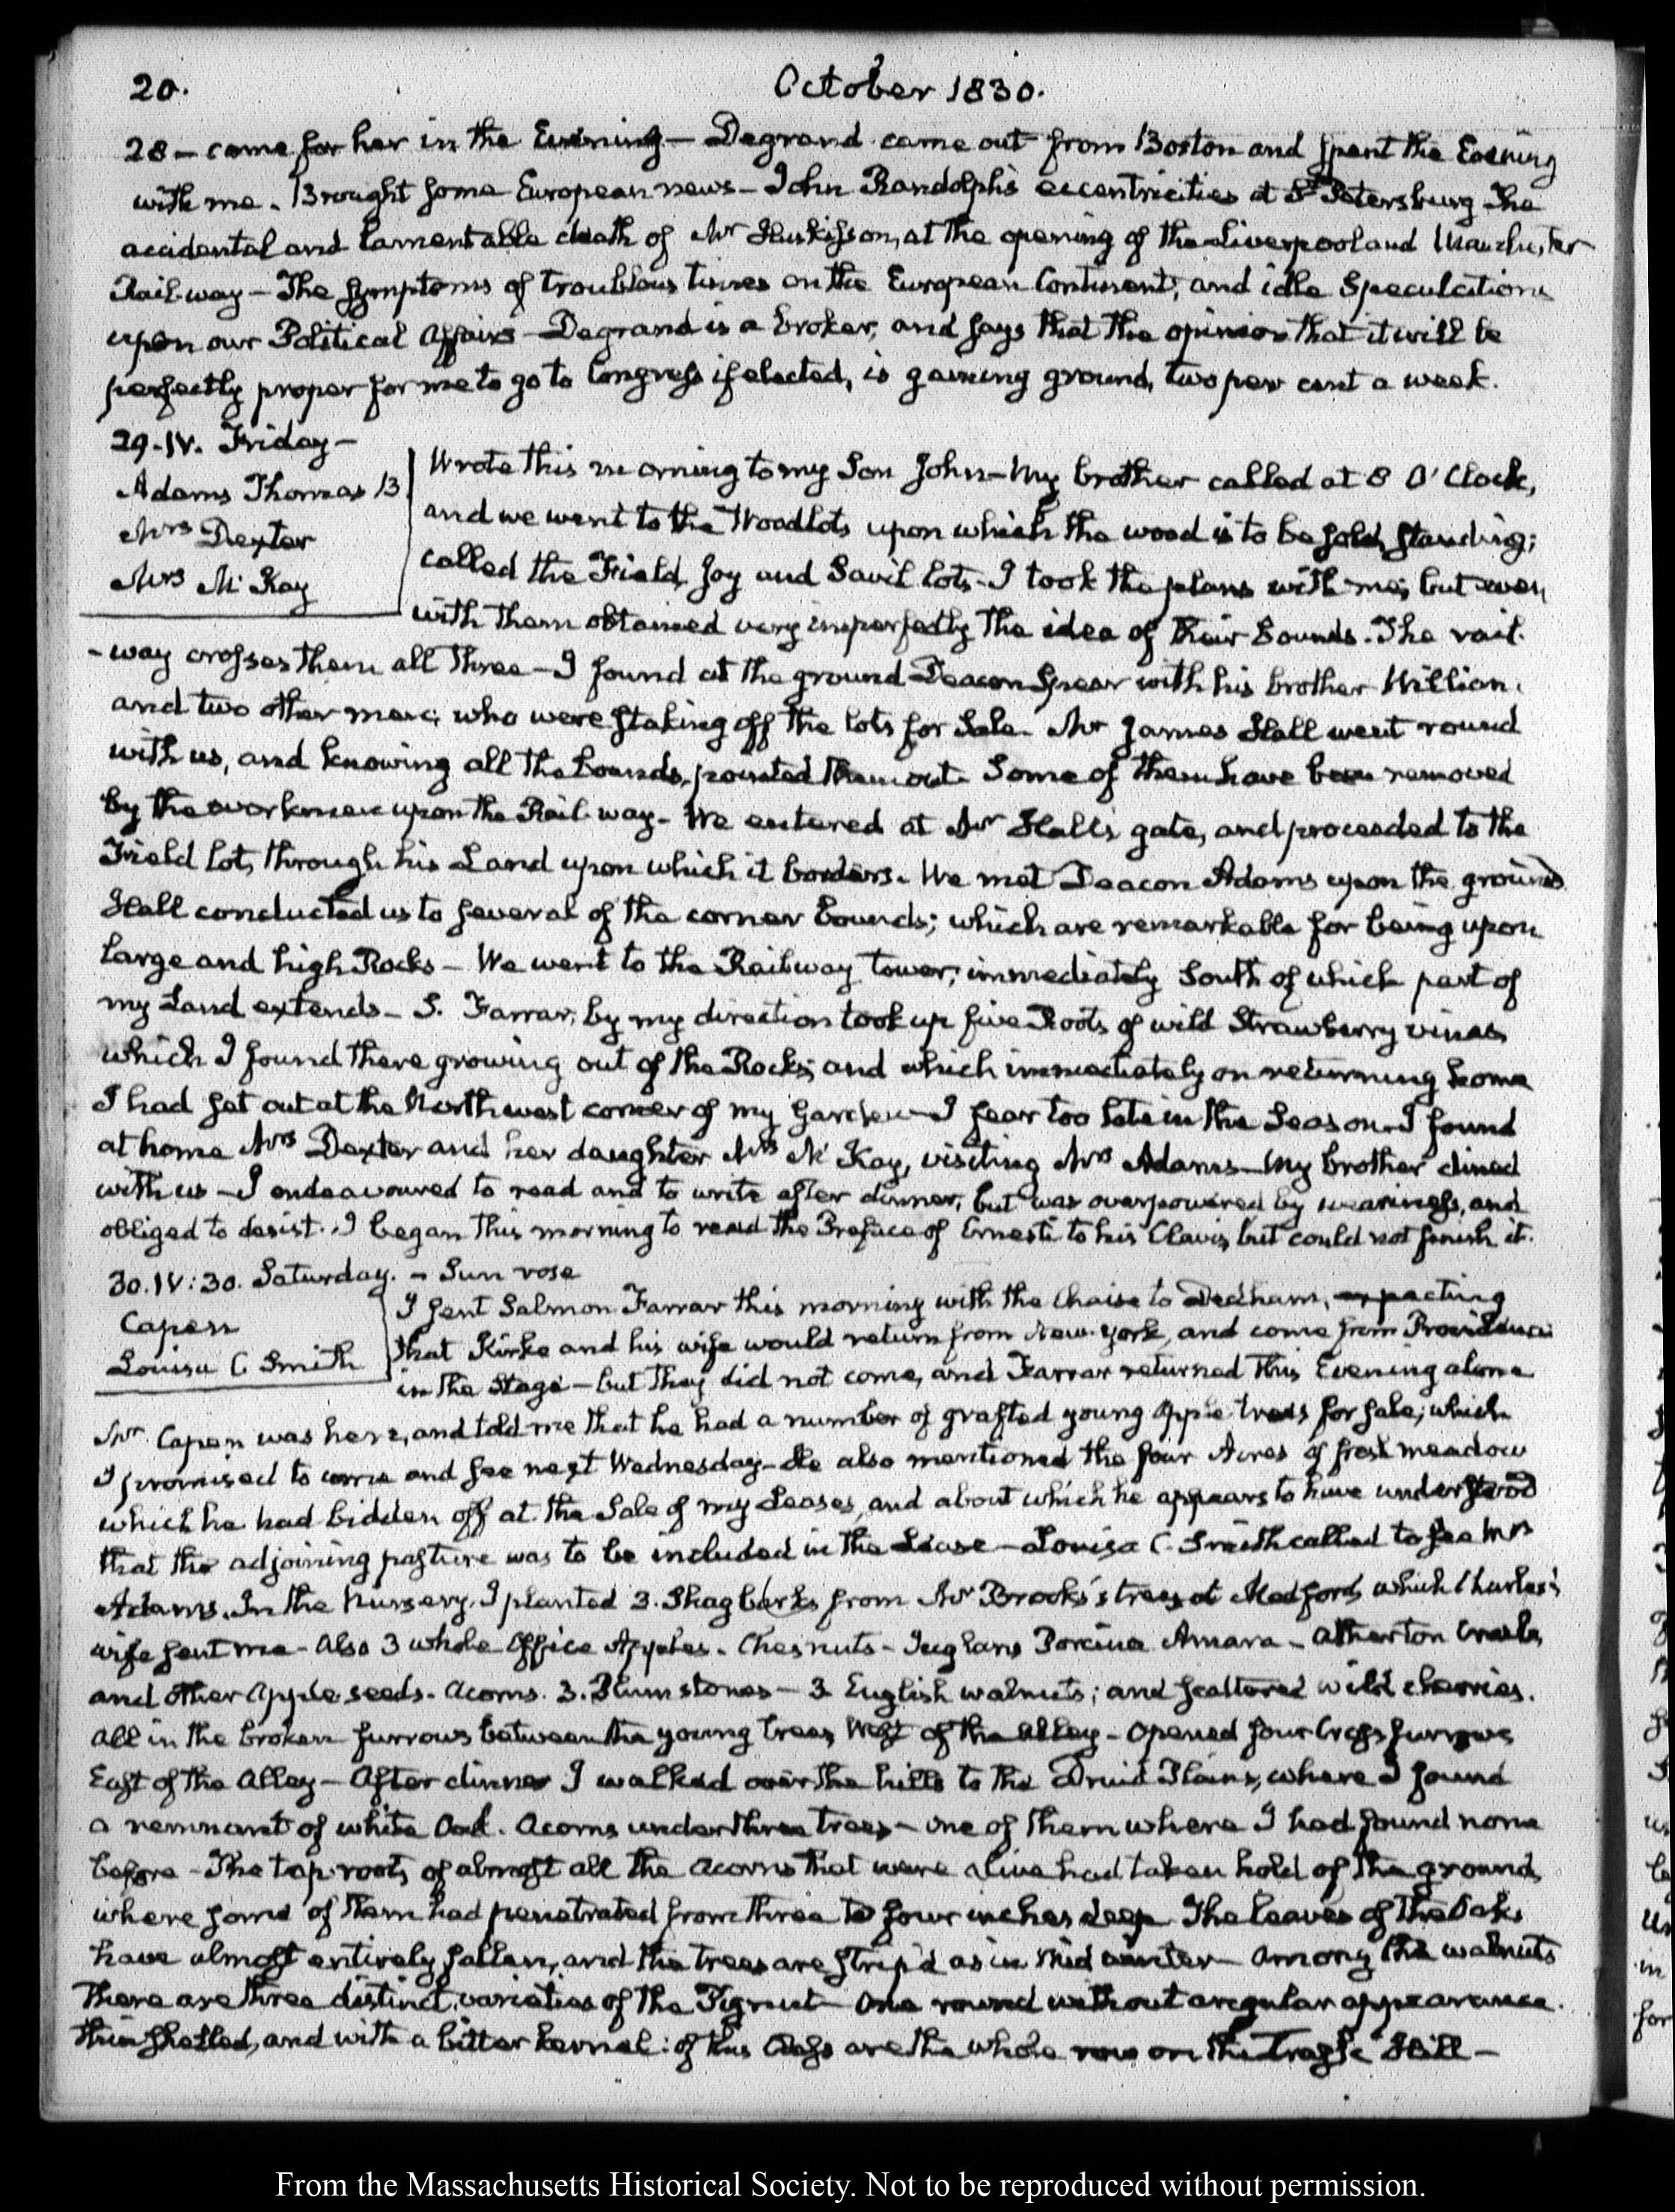 20.
October 1830.
28 — came for her in the Evening — Degrand came out from Boston and spent the Evening
with me. Brought some European news — John Randolph's eccentricities at St. Petersburg — The
accidental and lamentable death of Mr Huskisson, at the opening of the Liverpool and Manchester
Rail-way — The symptoms of troublous times on the European Continent, and idle Speculations
upon our Political Affairs — Degrand is a broker, and says that the opinion that it will be
perfectly proper for me to go to Congress if elected, is gaining ground, two per cent a week.
29. IV. Friday —
Adams Thomas B.
Mrs Dexter
Mrs McKay
Wrote this morning to my Son John — My brother called at 8 O'Clock,
and we went to the Woodlots upon which the wood is to be sold, standing;
called the Field, Joy and Savil lots — I took the plans with me, but even
with them obtained very imperfectly the idea of their bounds. The rail-
-way crosses them all three — I found at the ground Deacon Spear with his brother William,
and two other men; who were staking off the lots for Sale. Mr James Hall went round
with us, and knowing all the bounds, pointed them out. Some of them have been removed
by the workmen upon the Rail-way — We entered at Mr Hall's gate, and proceeded to the
Field lot, through his Land upon which it borders. We met Deacon Adams upon the ground
Hall conducted us to several of the corner bounds; which are remarkable for being upon
large and high Rocks — We went to the Railway tower; immediately South of which part of
my Land extends — S. Farrar, by my direction took up five Roots of wild Strawberry vines
which I found there growing out of the Rocks; and which immediately on returning home
I had set out at the Northwest corner of my Garden — I fear too late in the Season. I found
at home Mrs Dexter and her daughter Mrs McKay, visiting Mrs Adams — My brother dined
with us — I endeavoured to read and to write after dinner, but was overpowered by weariness, and
obliged to desist. I began this morning to read the Preface of Ernesti to his Clavis but could not finish it.
30. IV:30. Saturday. — Sun rose
Capen
Louisa C Smith
I sent Salmon Farrar this morning with the Chaise to Dedham, expecting
that Kirke and his wife would return from New-York, and come from Providence
in the Stage — but they did not come, and Farrar returned this Evening alone
Mr Capen was here, and told me that he had a number of grafted young Apple trees for sale; which
I promised to come and see next Wednesday — He also mentioned the four Acres of fresh meadow
which he had bidden off at the Sale of my Leases, and about which he appears to have understood
that the adjoining pasture was to be included in the Lease — Louisa C. Smith called to see Mrs
Adams. In the Nursery, I planted 3. Shagbarks from Mr Brooks's trees at Medford, which Charles's
wife sent me — Also 3 whole Office Apples. Chesnuts — Juglans Porcina Amara — Atherton Crabs,
and other Apple seeds. Acorns. 3. Plum stones — 3 English walnuts; and scattered wild cherries.
All in the broken furrows between the young trees, West of the Alley — Opened four Cross furrows
East of the Alley — After dinner I walked over the hills to the Druid Plains, where I found
a remnant of white Oak. Acorns under three trees — one of them where I had found none
before — The tap-roots of almost all the Acorns that were alive had taken hold of the ground,
where some of them had penetrated from three to four inches deep. The leaves of the Oaks
have almost entirely fallen, and the trees are strip'd as in mid winter — Among the walnuts
There are three distinct varieties of the Pignut — One round without angular appearance.
thin shelled, and with a bitter kernel: of this Class are the whole row on the Hill —
From the Massachusetts Historical Society. Not to be reproduced without permission.